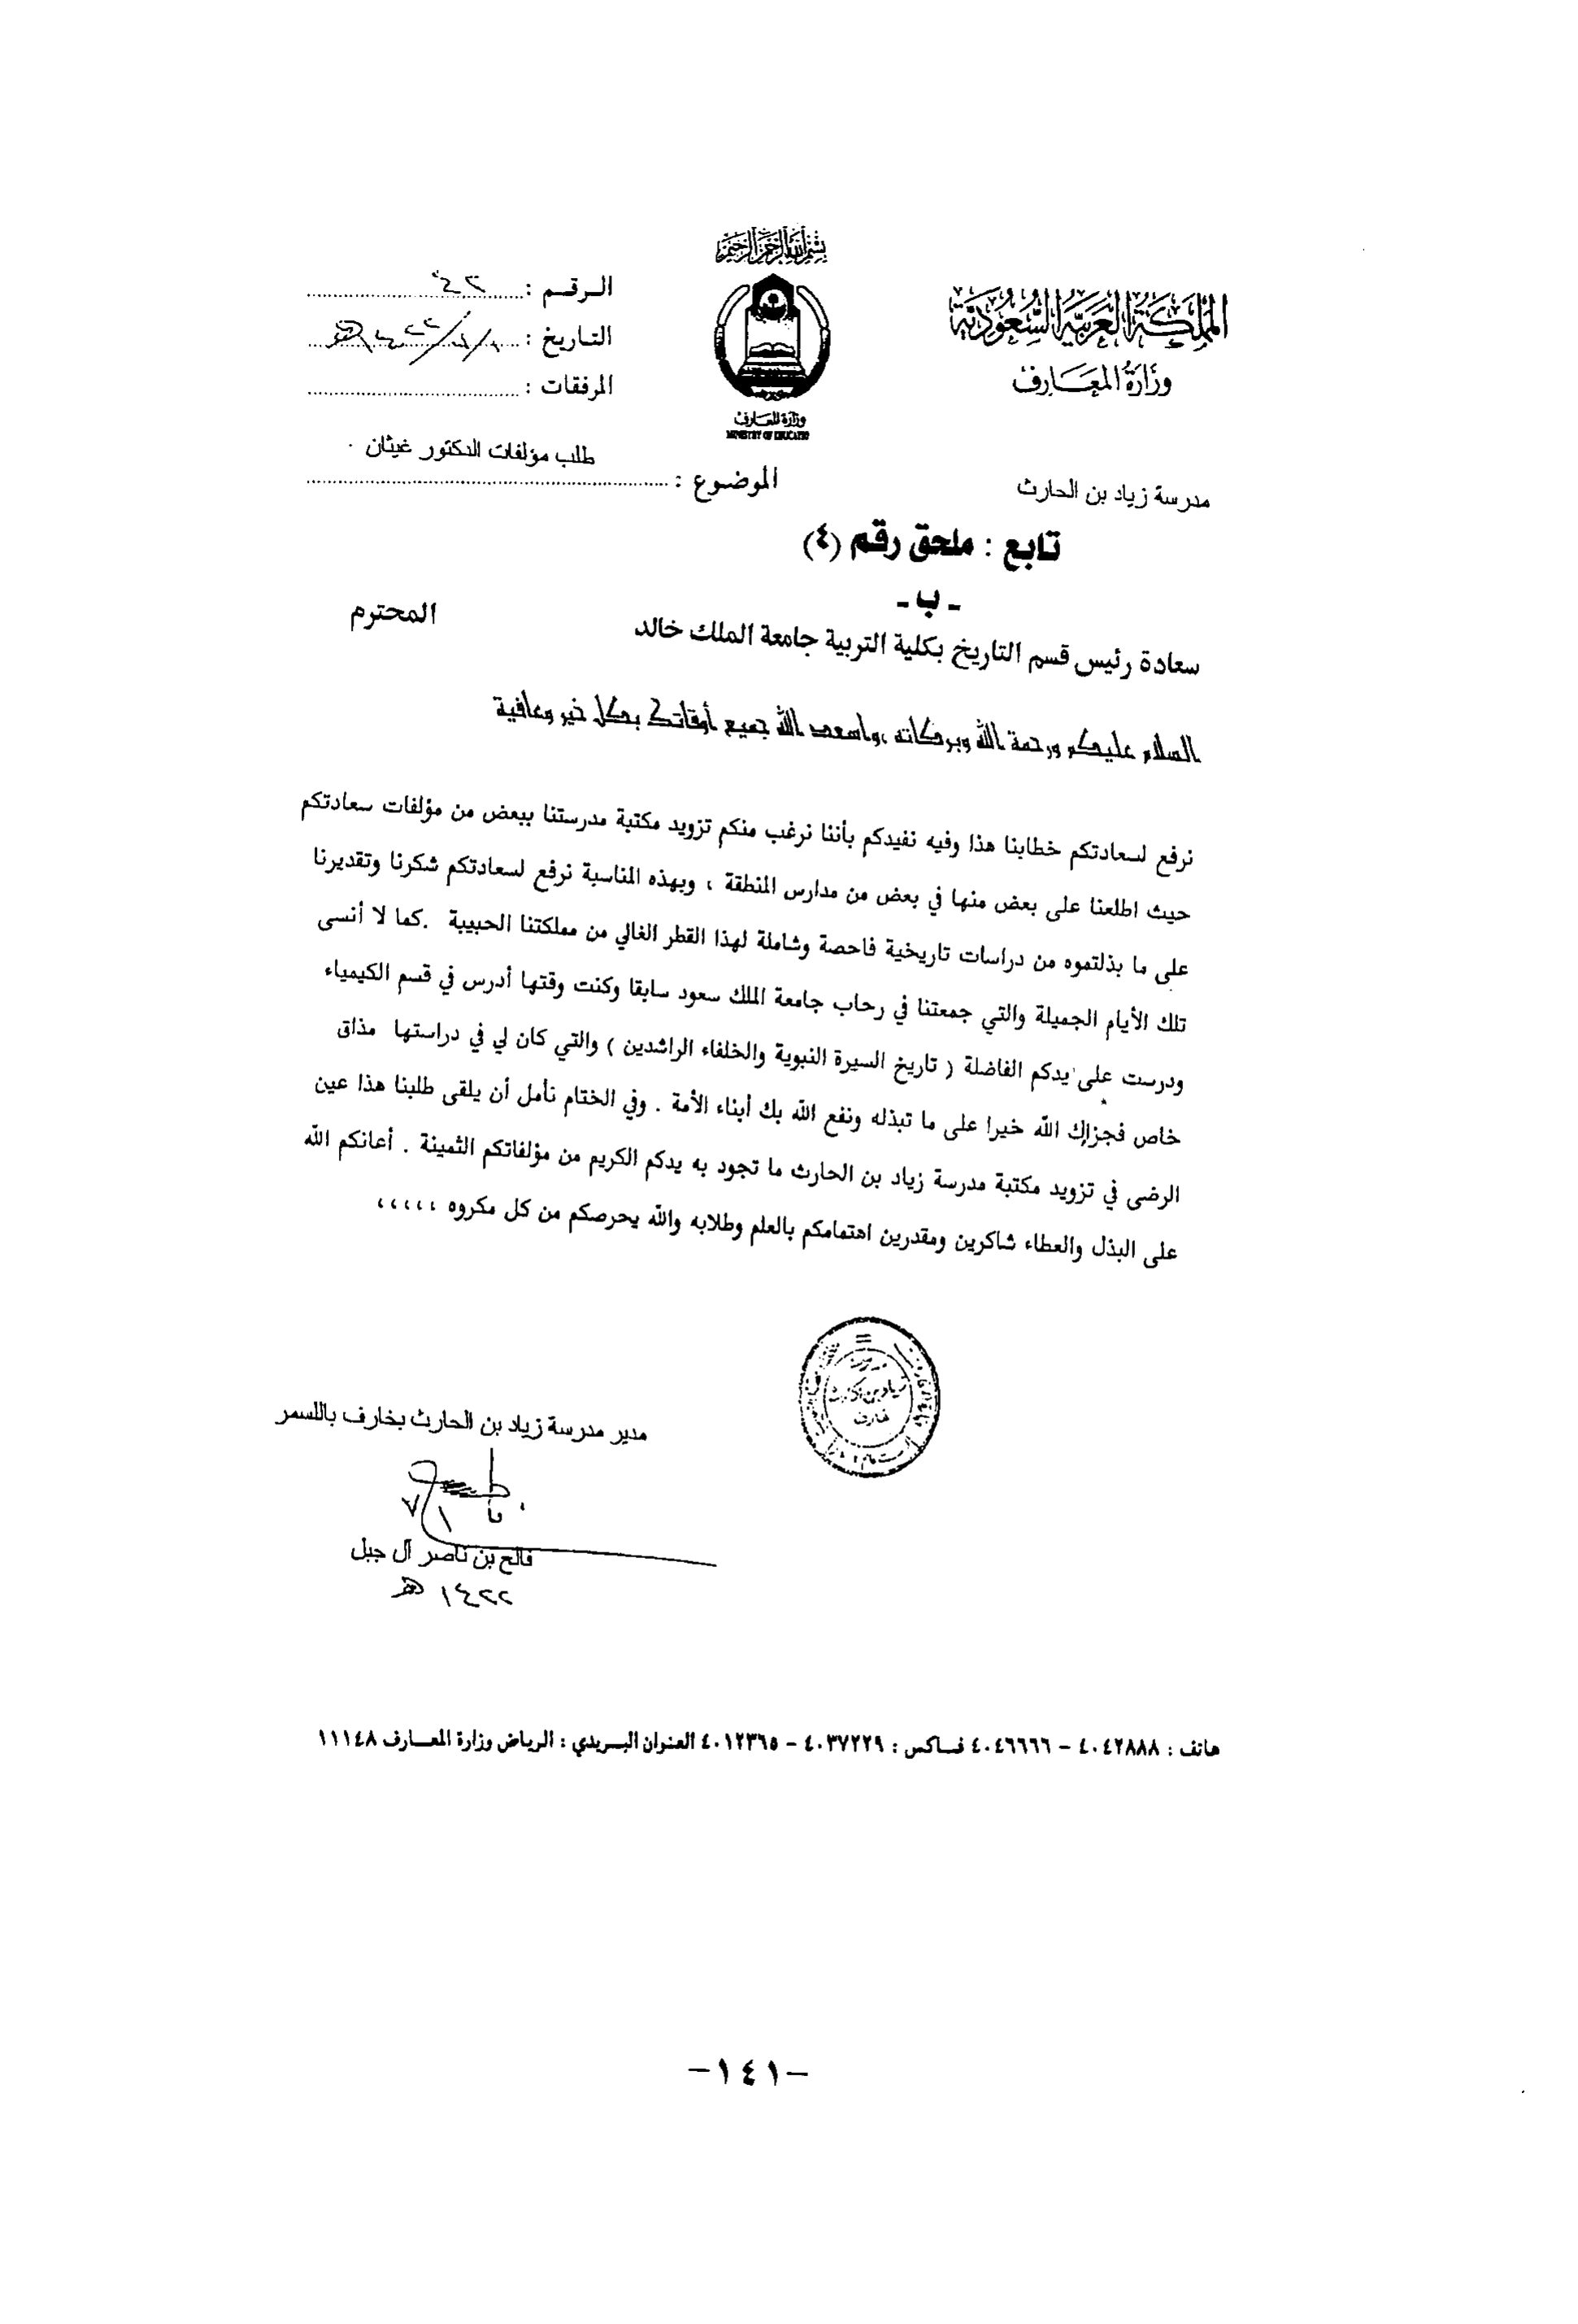 بسم الله الرحمن الرحيم
المملكة العربية السعودية
وزارة المعارف
وزارة المعارف
MINISTRY OF EDUCATION
الرقم :
التاريخ : ١٤٢٢ هـ
المرفقات :
مدرسة زياد بن الحارث
الموضوع : طلب مؤلفات الدكتور غيثان .
تابع : ملحق رقم (٤)
- ب -
سعادة رئيس قسم التاريخ بكلية التربية جامعة الملك خالد المحترم
السلام عليكم ورحمة الله وبركاته ،واسعد الله جميع أوقاتكم بكل خير وعافية
نرفع لسعادتكم خطابنا هذا وفيه نفيدكم بأننا نرغب منكم تزويد مكتبة مدرستنا ببعض من مؤلفات سعادتكم
حيث اطلعنا على بعض منها في بعض من مدارس المنطقة ، وبهذه المناسبة نرفع لسعادتكم شكرنا وتقديرنا
على ما بذلتموه من دراسات تاريخية فاحصة وشاملة لهذا القطر الغالي من مملكتنا الحبيبة .كما لا أنسى
تلك الأيام الجميلة والتي جمعتنا في رحاب جامعة الملك سعود سابقا وكنت وقتها أدرس في قسم الكيمياء
ودرست على يدكم الفاضلة ( تاريخ السيرة النبوية والخلفاء الراشدين ) والتي كان لي في دراستها مذاق
خاص فجزاك الله خيرا على ما تبذله ونفع الله بك أبناء الأمة . وفي الختام نأمل أن يلقى طلبنا هذا عين
الرضى في تزويد مكتبة مدرسة زياد بن الحارث ما تجود به يدكم الكريم من مؤلفاتكم الثمينة . أعانكم الله
على البذل والعطاء شاكرين ومقدرين اهتمامكم بالعلم وطلابه والله يحرصكم من كل مكروه ،،،،،
مدرسة
زياد بن الحارث
مدير مدرسة زياد بن الحارث بخارف باللسمر
فالح بن ناصر آل جبل
١٤٢٢ هـ
هاتف : ٤٠٤٢٨٨٨ – ٤٠٤٦٦٦٦ فاكس : ٤٠٣٧٢٢٩ – ٤٠١٢٣٦٥ العنوان البريدي : الرياض وزارة المعارف ١١١٤٨
-١٤١-